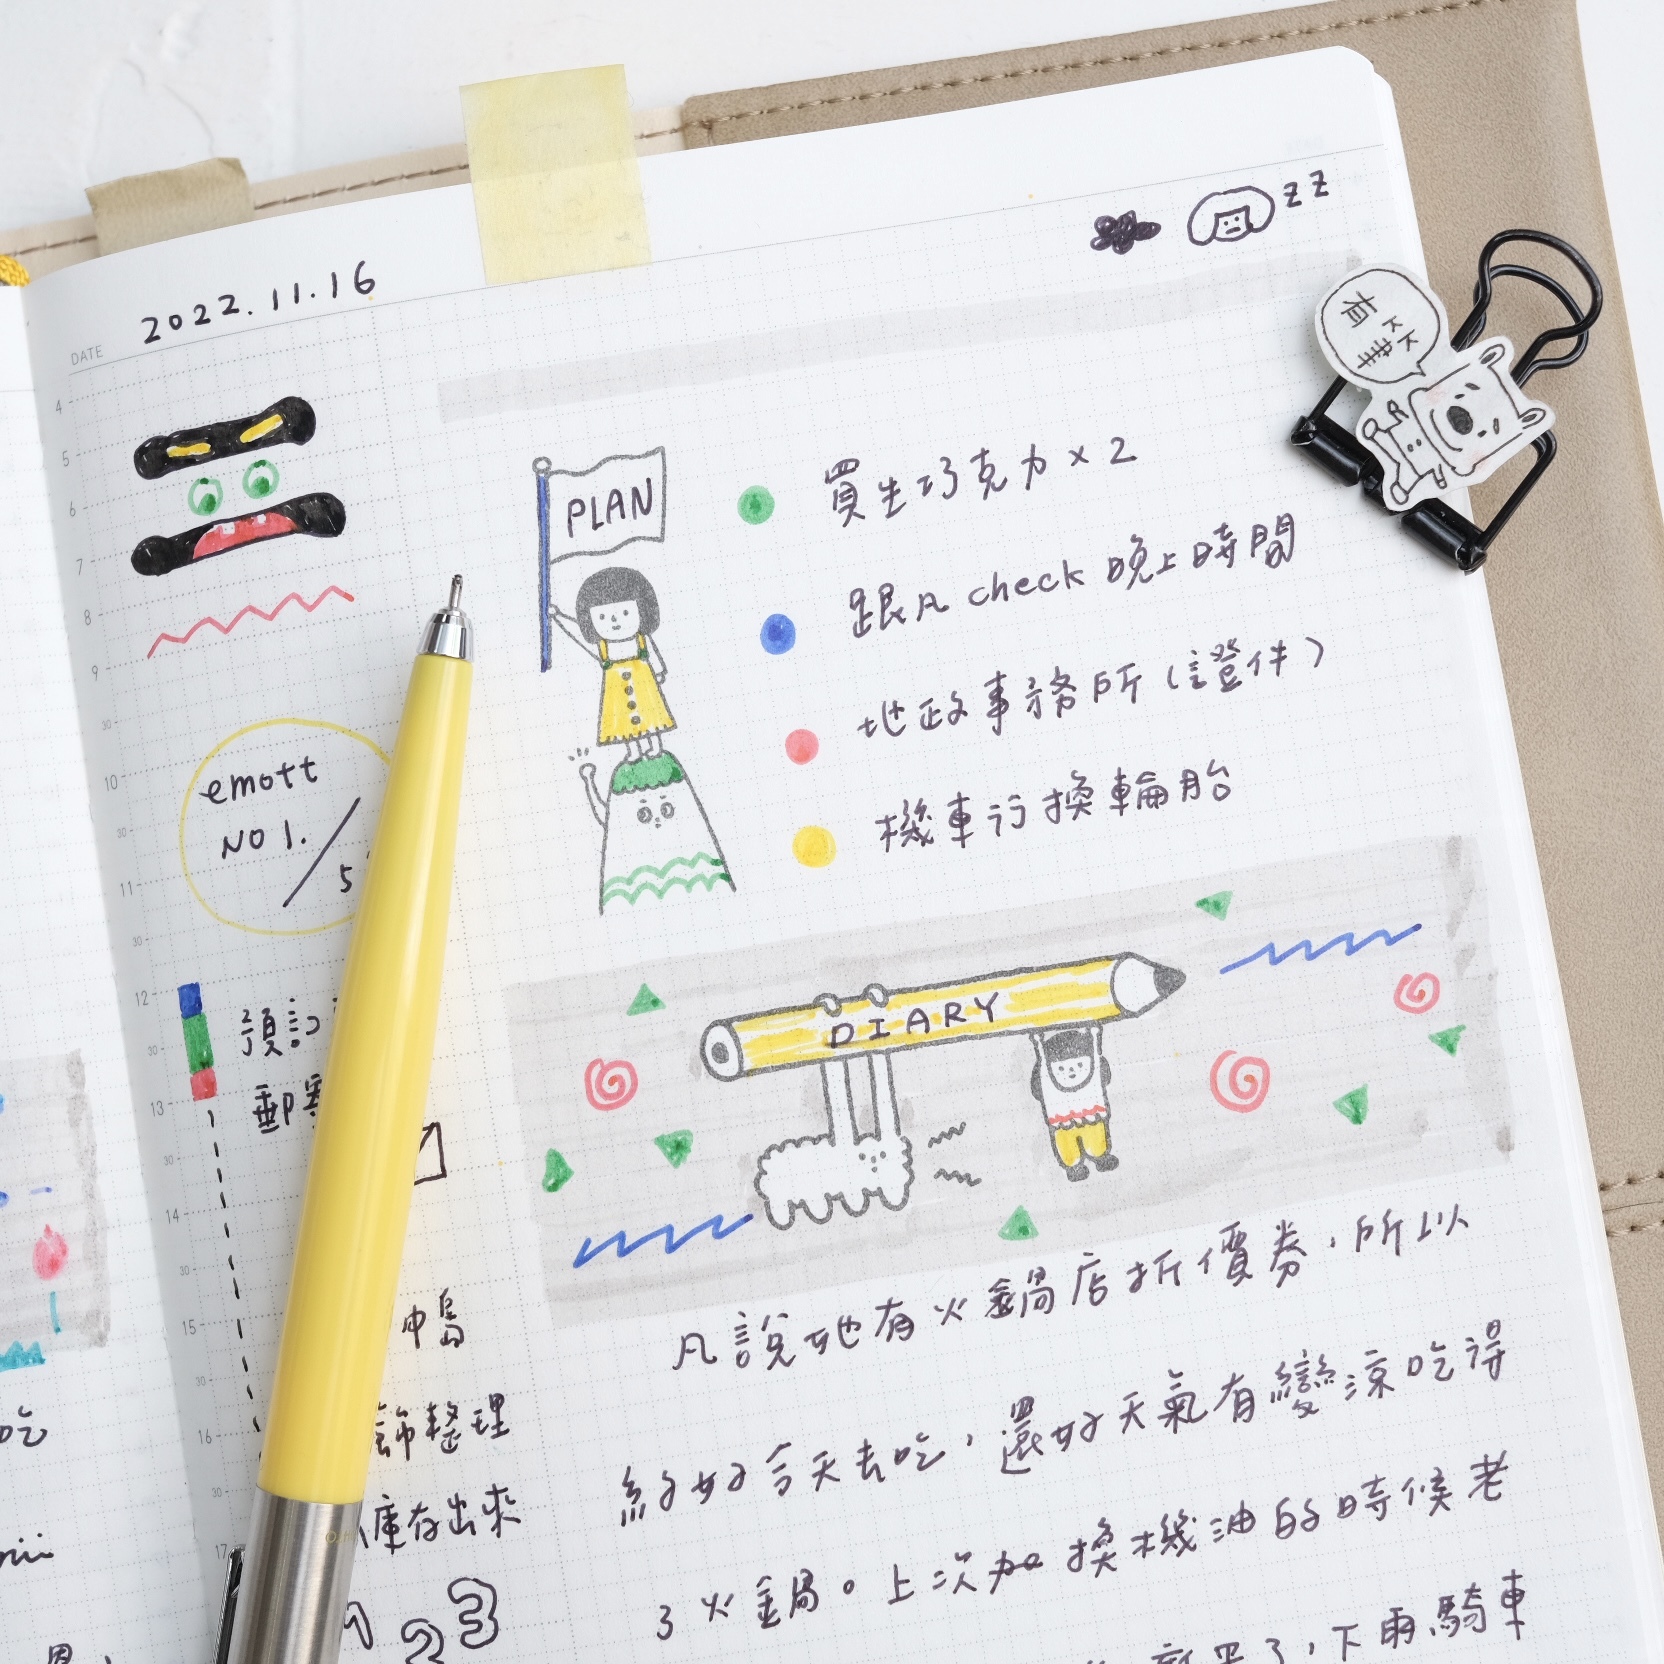 2022.11.16
DATE
z z
有
PLAN
買生巧克力 x 2
跟凡 check 晚上時間
地政事務所（證件）
機車行換輪胎
4
5
6
7
8
9
30
10
30
11
30
12
30
13
30
14
30
15
30
16
30
17
emott
NO 1.
5
預記
郵寄
中島
飾整理
庫存出來
1 2 3
DIARY
凡說她有火鍋店折價券，所以
約好今天去吃，還好天氣有變涼吃得
了火鍋。上次加換機油的時候老
了，下雨騎車
吃